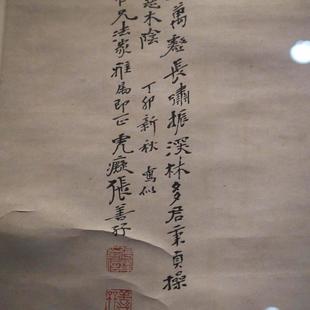 萬壑長嘯振深林多君秉貞操
木陰 丁卯新秋寫似
兄法家雅屬即正虎癡張善孖